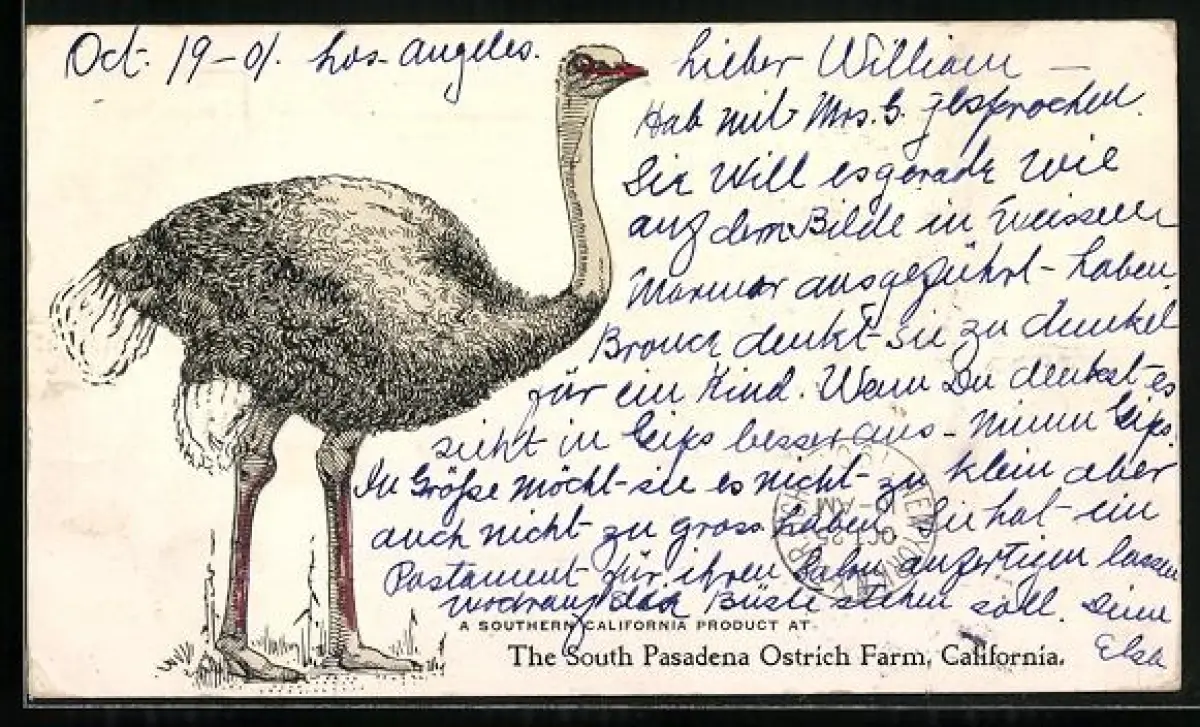 Oct. 19-01. Los-Angeles.
Lieber William —
Hab mit Mrs. G. gesprochen.
Sie Will es gerade wie
auf dem Bilde in weissem
Marmor ausgeführt- haben.
Bronce denkt- sie zu dunkel
für ein Kind. Wenn Du denkst- es
sieht in Gips besser aus- nimm Gips.
In Größe möcht- sie es nicht- zu klein aber
auch nicht zu gross haben. Sie hat- ein
Postament für ihren Salon anfertigen lassen
worauf die Büste stehen soll. Deine
Elsa
NEW YORK
OCT 25
AM
A SOUTHERN CALIFORNIA PRODUCT AT
The South Pasadena Ostrich Farm, California.